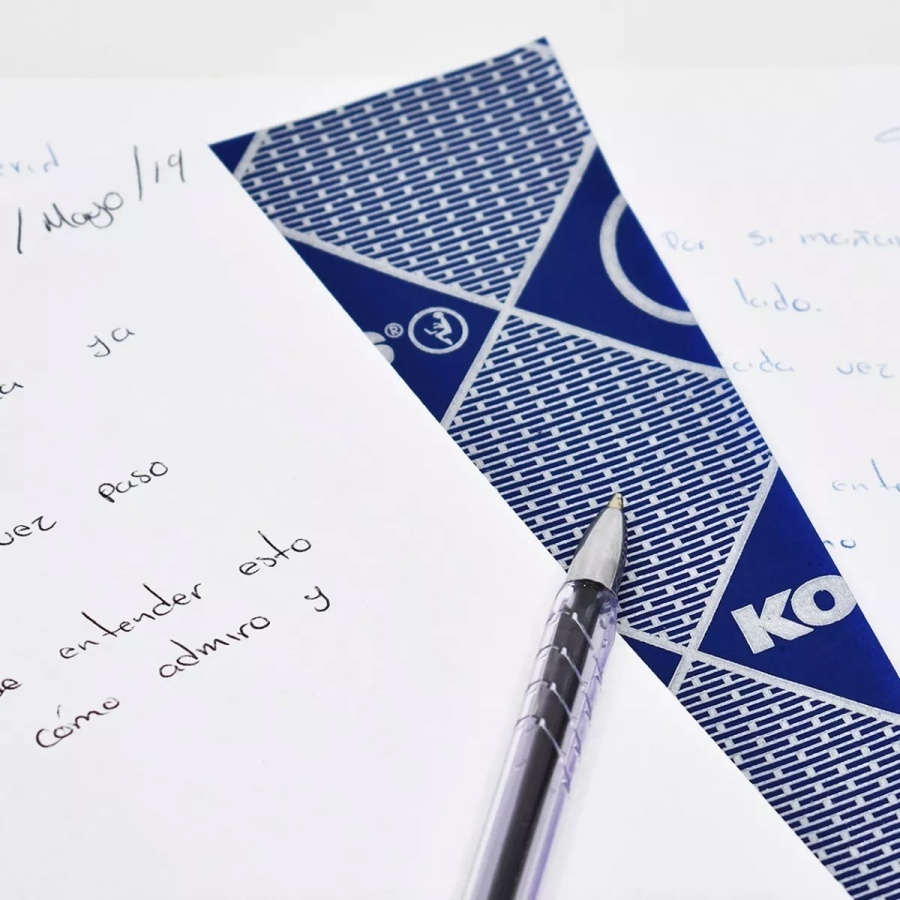 /Mayo/19
ya
vez paso
entender esto
cómo admiro y
®
KO
Por si mañan
lado.
ada vez
ente
no